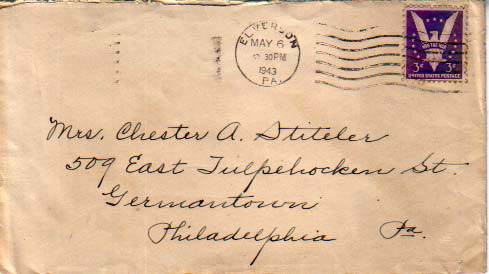 ELVERSON
MAY 6
30 PM
1943
PA.
WIN THE WAR
3¢ 3¢
UNITED STATES POSTAGE
Mrs. Chester A. Stiteler
509 East Tulpehocken St.
Germantown
Philadelphia Pa.